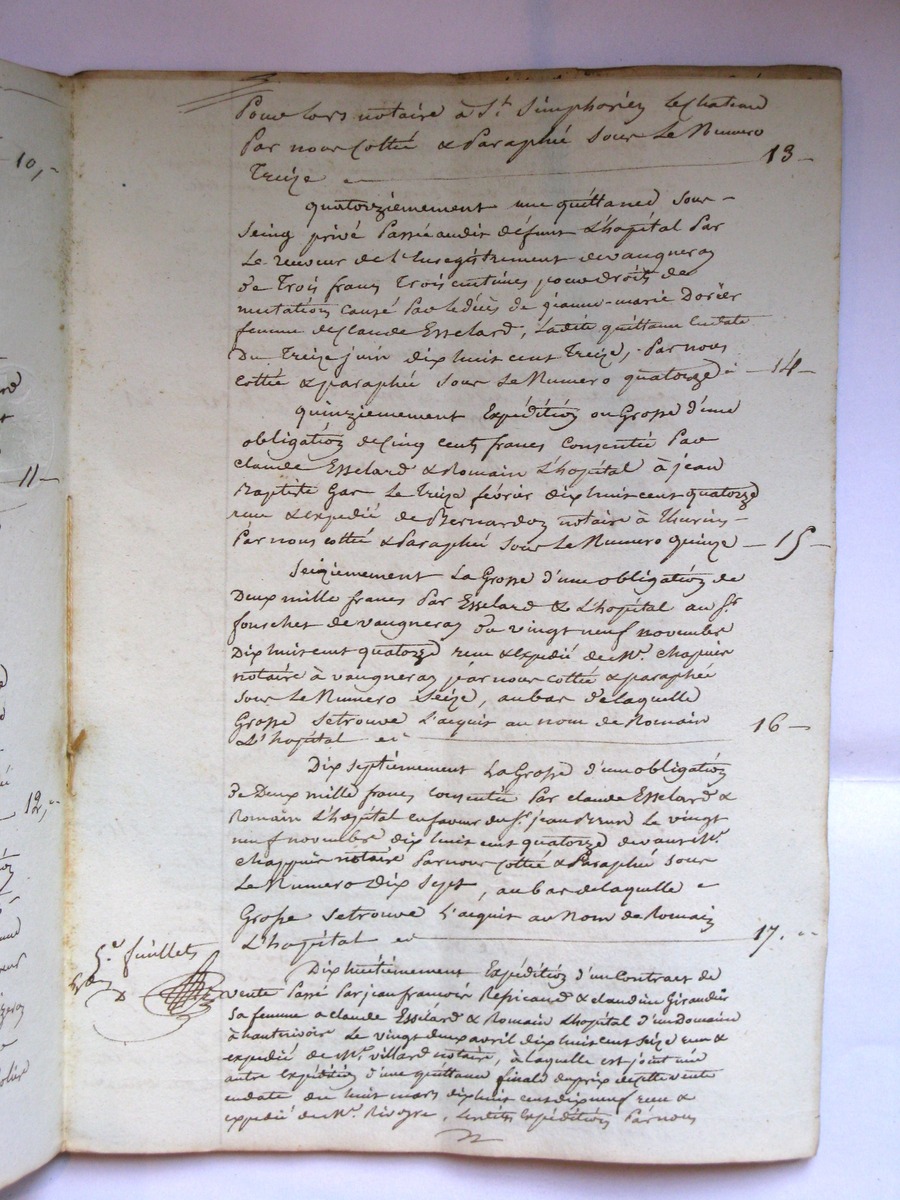 Pour lors notaire à St. Simphorien le Chateau
Par nous Cotté & Paraphé sous Le Numero
Treize 13
quatorziemement une quittance sous
seing privé Passé audit défunt L'hopital Par
Le receveur de l'Enregistrement de vaugneray
de Trois francs Trois centimes pour droits de
mutation causé Par le décès de jeanne-marie Dorier
femme de Claude Esselard, Ladite quittance en date
Du Treize juin dix huit cent Treize, Par nous
cottée & paraphée sous Le Numero quatorze 14
quinziemement Expédition ou Grosse d'une
obligation de Cinq cents francs Consentie Par
Claude Esselard & Romain L'hopital à jean
Baptiste Gar Le Treize février dix huit cent quatorze
reçue & expedié de Bernardon notaire à Thurins
Par nous cottée & Paraphée sous Le Numero quinze 15
Seiziemement La Grosse d'une obligation de
Deux mille francs Par Esselard & L'hopital au Sr.
fouschet de vaugneray du vingt neuf novembre
Dix huit cent quatorze reçue & expedié de Me. Chapuis
notaire à vaugneray par nous cottée & paraphée
sous Le Numero seize, au bas de laquelle
Grosse se trouve L'acquit au nom de Romain
L'hopital 16
Dix septiemement La Grosse d'une obligation
de Deux mille francs consentie Par claude Esselard &
Romain L'hopital en faveur du Sr. jean Le vingt
neuf novembre dix huit cent quatorze devant Me.
Chappuis notaire Par nous Cottée & Paraphée sous
Le Numero Dix Sept, au bas de laquelle
Grosse se trouve L'acquit au Nom de Romain
L'hopital 17.
5e. feuillets
Dix huitiemement Expédition d'un Contract de
vente Passé Par jean francois & claudine Giraudier
sa femme à claude Esselard & Romain L'hopital d'un Domaine
à hauterivoir Le vingt deux avril dix huit cent seize reçu &
expedié de Me. villard notaire, à laquelle est jointe une
autre Expédition d'une quittance finale du prix de cette vente
en date du huit mars dix huit cent dix neuf reçue &
expedié du Me. Rivoyre, Lesdites Expéditions Par nous
10,
11
12,